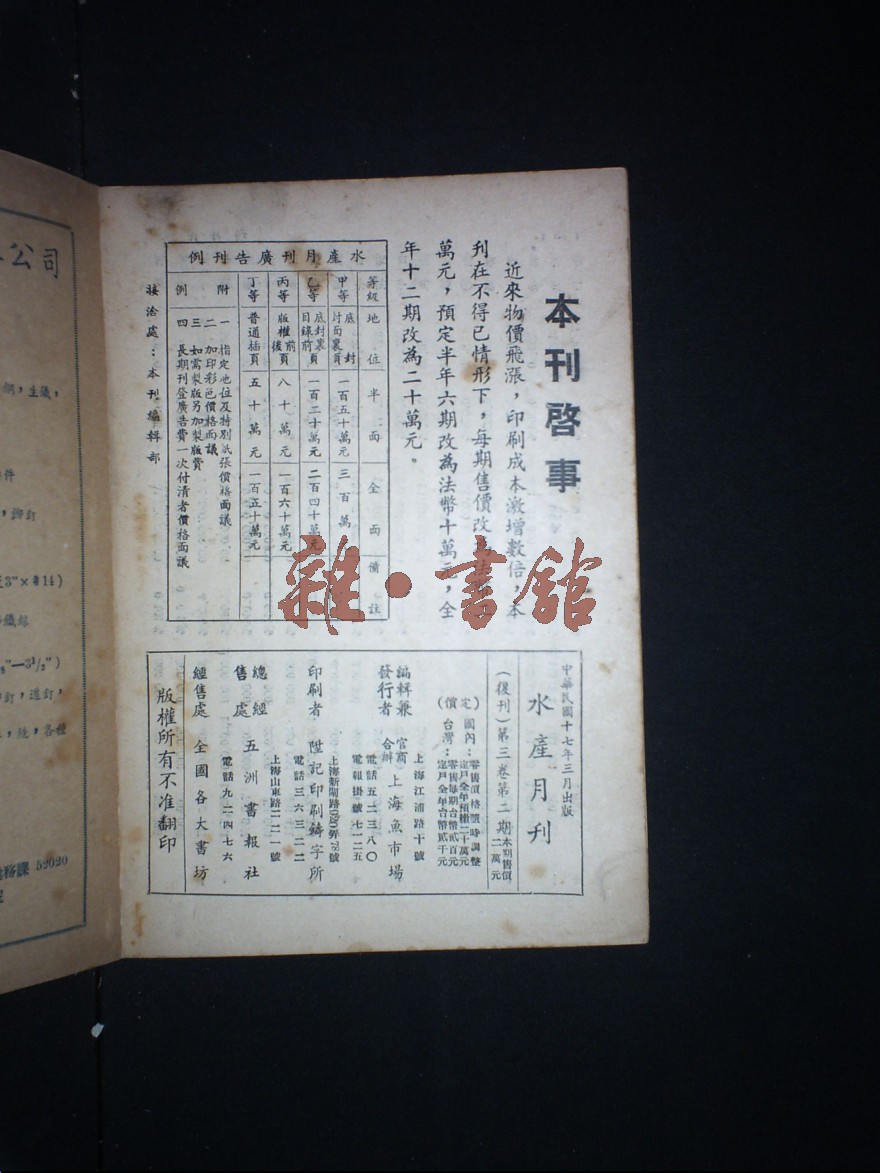 本刊啓事
近來物價飛漲，印刷成本激增數倍，本
刊在不得已情形下，每期售價改
萬元，預定半年六期改為法幣十萬元，全
年十二期改為二十萬元。
水產月刊廣告刊例
等級 地位 半面 全面 備註
甲等 底封 封面裏頁 一百五十萬元 三百萬
乙等 底封裏頁 目錄前 一百二十萬元 二百四十萬元
丙等 版權前頁後 八十萬元 一百六十萬元
丁等 普通插頁 五十萬元 一百五十萬元
附例
一 指定地位及特別紙張價格面議
二 加印彩色價格面議
三 如需製版另加製版費
四 長期刊登廣告費一次付清者價格面議
接洽處：本刊編輯部
中華民國十七年三月出版
水產月刊
（復刊）第三卷第二期 本期售價二萬元
定價
國內：零售價格隨時調整 定戶全年預繳二十萬元
台灣：零售每期台幣貳百元 定戶全年台幣貳千元
編輯兼發行者 官商合辦 上海魚市場
上海江浦路十號
電話五二三八〇
電報掛號七一二五
印刷者 陞記印刷鑄字所
上海新閘路
電話三六三二二
總經售處 五洲書報社
上海山東路二二一號
電話九二四七六
經售處 全國各大書坊
版權所有不准翻印
雜·書館
公司
鋼，生鐵，
件
，鉚釘
3"×#14)
鐵絲
—3½")
釘，道釘，
，各種
務課 52020